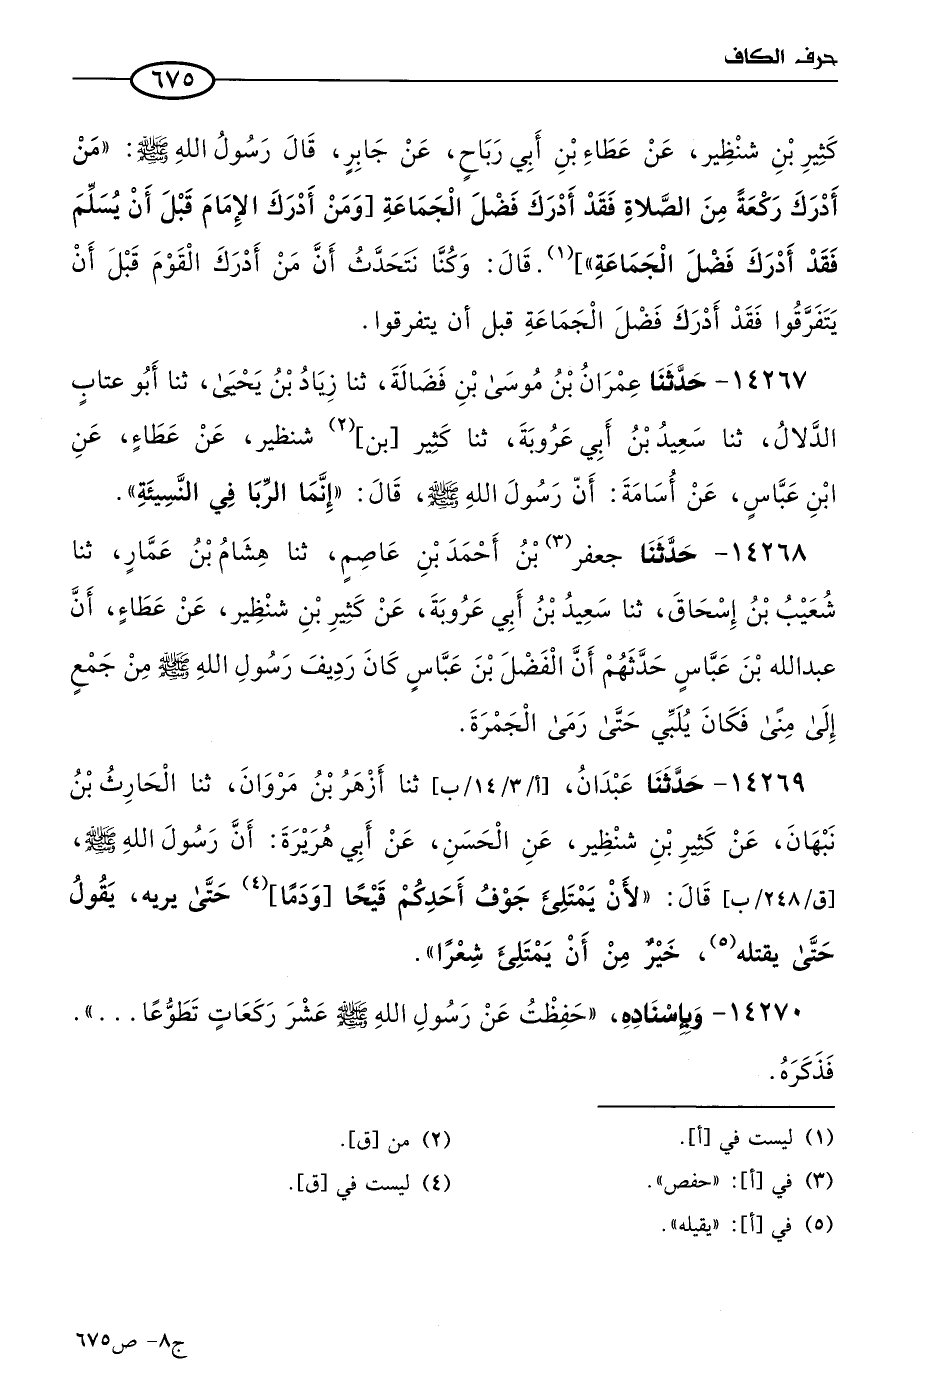 حرف الكاف
٦٧٥
كَثِيرِ بْنِ شنْظِير، عَنْ عَطَاءِ بْنِ أَبِي رَبَاحٍ، عَنْ جَابِرٍ، قَالَ رَسُولُ اللهِ ﷺ: «مَنْ
أَدْرَكَ رَكْعَةً مِنَ الصَّلاةِ فَقَدْ أَدْرَكَ فَضْلَ الْجَمَاعَةِ [وَمَنْ أَدْرَكَ الإِمَامَ قَبْلَ أَنْ يُسَلِّمَ
فَقَدْ أَدْرَكَ فَضْلَ الْجَمَاعَةِ»](١). قَالَ: وَكُنَّا نَتَحَدَّثُ أَنَّ مَنْ أَدْرَكَ الْقَوْمَ قَبْلَ أَنْ
يَتَفَرَّقُوا فَقَدْ أَدْرَكَ فَضْلَ الْجَمَاعَةِ قبل أن يتفرقوا.
١٤٢٦٧- حَدَّثَنَا عِمْرَانُ بْنُ مُوسَىٰ بْنِ فَضَالَةَ، ثنا زِيَادُ بْنُ يَحْيَىٰ، ثنا أَبُو عتابٍ
الدَّلالُ، ثنا سَعِيدُ بْنُ أَبِي عَرُوبَةَ، ثنا كَثِير [بن](٢) شنظير، عَنْ عَطَاءٍ، عَنِ
ابْنِ عَبَّاسٍ، عَنْ أُسَامَةَ: أَنّ رَسُولَ اللهِ ﷺ، قَالَ: «إِنَّمَا الرِّبَا فِي النَّسِيئَةِ».
١٤٢٦٨- حَدَّثَنَا جعفر(٣) بْنُ أَحْمَدَ بْنِ عَاصِمٍ، ثنا هِشَامُ بْنُ عَمَّارٍ، ثنا
شُعَيْبُ بْنُ إِسْحَاقَ، ثنا سَعِيدُ بْنُ أَبِي عَرُوبَةَ، عَنْ كَثِيرِ بْنِ شنْظِير، عَنْ عَطَاءٍ، أَنَّ
عبدالله بْنَ عَبَّاسٍ حَدَّثَهُمْ أَنَّ الْفَضْلَ بْنَ عَبَّاسٍ كَانَ رَدِيفَ رَسُولِ اللهِ ﷺ مِنْ جَمْعٍ
إِلَىٰ مِنًىٰ فَكَانَ يُلَبِّي حَتَّىٰ رَمَىٰ الْجَمْرَةَ.
١٤٢٦٩- حَدَّثَنَا عَبْدَانُ، [أ/٣/١٤/ب] ثنا أَزْهَرُ بْنُ مَرْوَانَ، ثنا الْحَارِثُ بْنُ
نَبْهَانَ، عَنْ كَثِيرِ بْنِ شنْظِير، عَنِ الْحَسَنِ، عَنْ أَبِي هُرَيْرَةَ: أَنَّ رَسُولَ اللهِ ﷺ،
[ق/٢٤٨/ب] قَالَ: «لأَنْ يَمْتَلِئَ جَوْفُ أَحَدِكُمْ قَيْحًا [وَدَمًا](٤) حَتَّىٰ يريه، يَقُولُ
حَتَّىٰ يقتله(٥)، خَيْرٌ مِنْ أَنْ يَمْتَلِئَ شِعْرًا».
١٤٢٧٠- وَبِإِسْنَادِهِ، «حَفِظْتُ عَنْ رَسُولِ اللهِ ﷺ عَشْرَ رَكَعَاتٍ تَطَوُّعًا...».
فَذَكَرَهُ.
(١) ليست في [أ]. (٢) من [ق].
(٣) في [أ]: «حفص». (٤) ليست في [ق].
(٥) في [أ]: «يقيله».
ج٨- ص٦٧٥